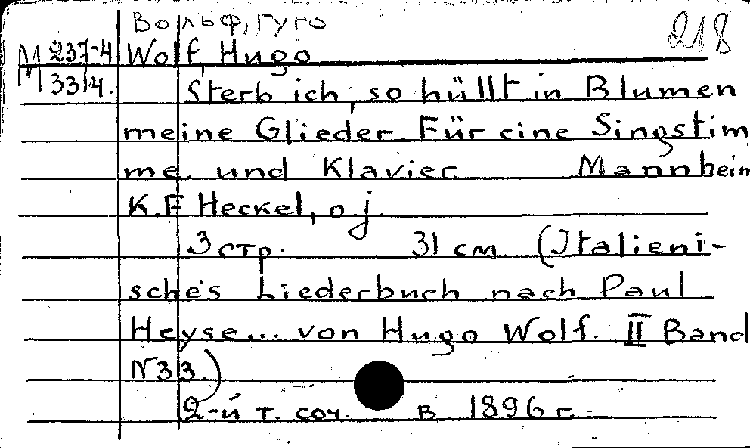 Вольф, Гуго
218
М 237-4 Wolf, Hugo
М 33/4. Sterb ich, so hüllt in Blumen
meine Glieder. Für eine Singstim
me und Klavier. Mannheim
K.F Heckel, o.j.
3 стр. 31 см (Italieni-
sches Liederbuch nach Paul
Heyse... von Hugo Wolf. II Band
N33.)
2-й т. соч. в 1896 г.